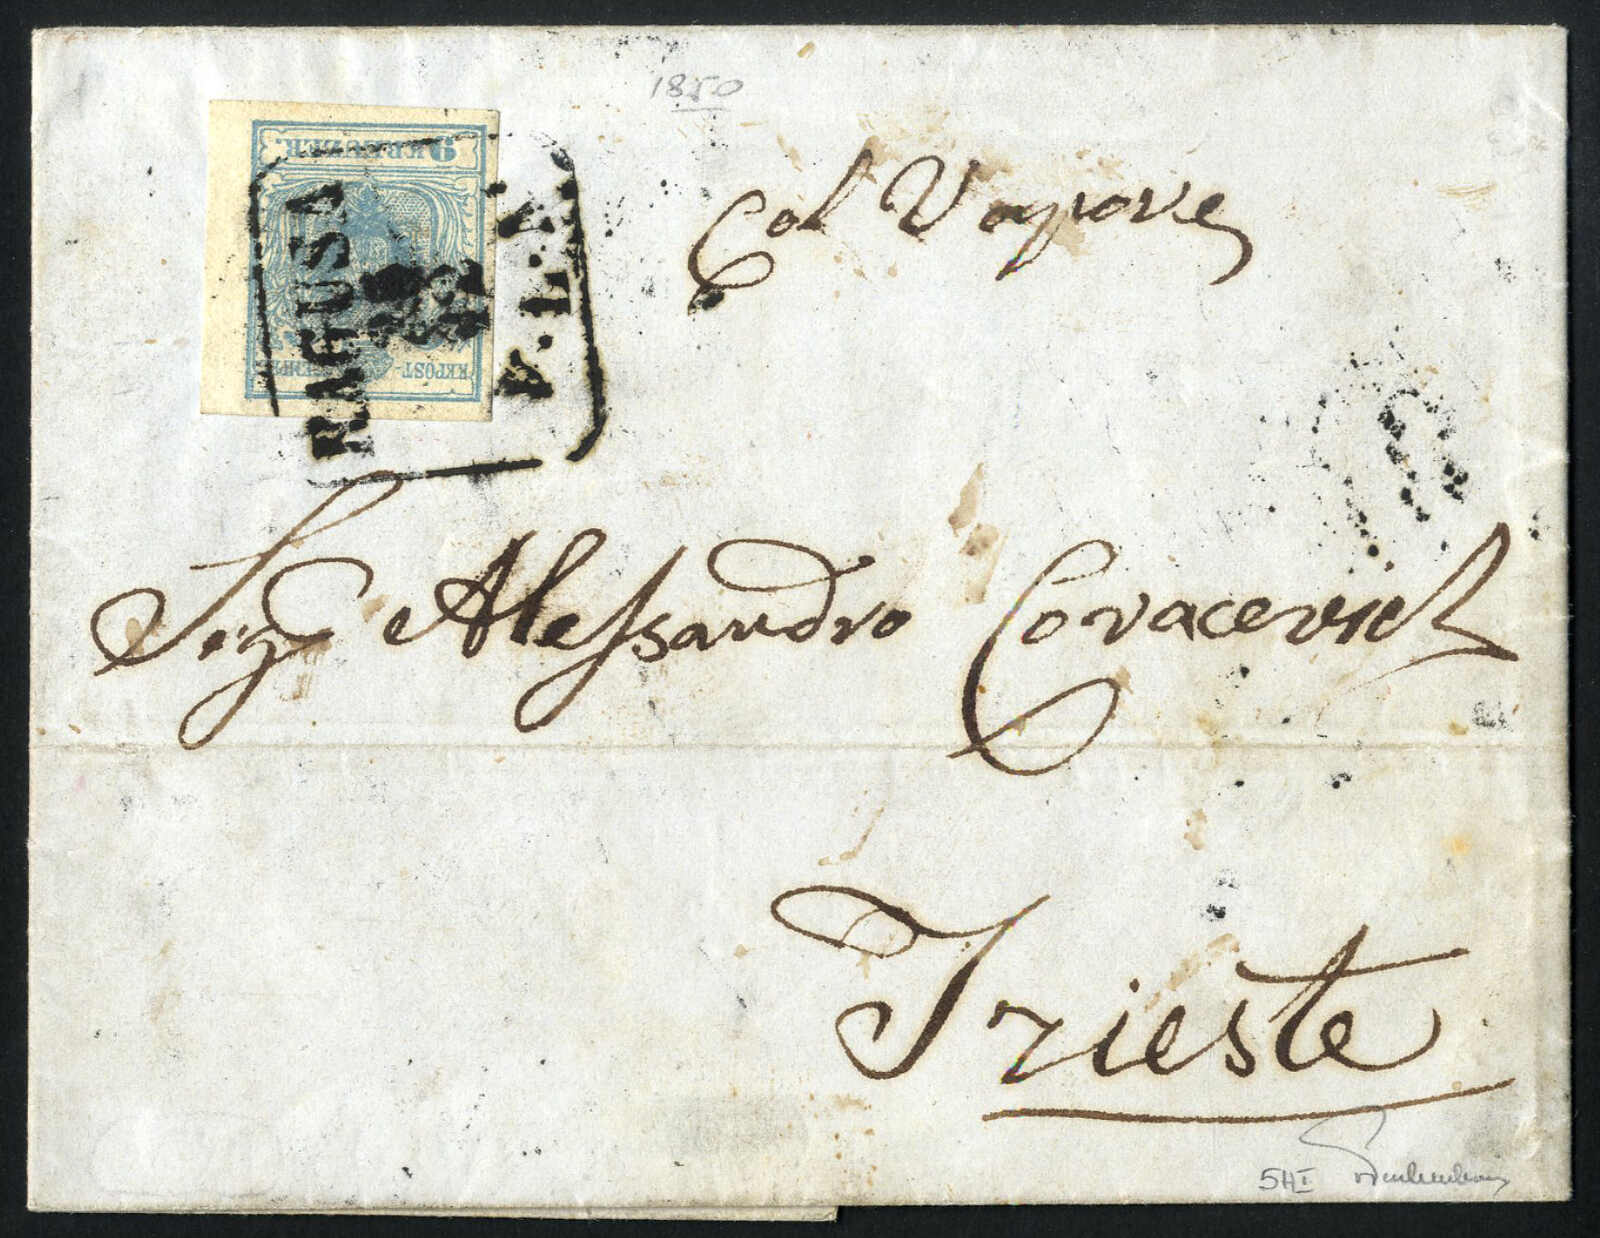 1850
9 KREUZER
RAGUSA
Col Vapore
Sig Alessandro Covacevich
Trieste
5HI